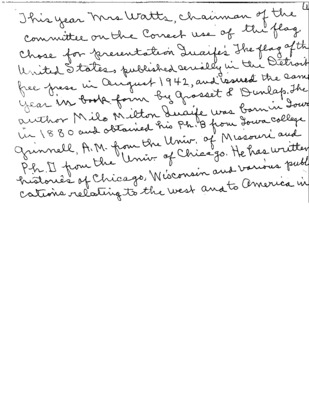 This year Mrs Watts, chairman of the
committee on the Correct use of the flag
chose for presentation Quaife's The flag of th
United States, published serially in the Detroit
free press in August 1942, and issued the same
year in book form by Grosset & Dunlap. The
author Milo Milton Quaife was born in Iowa
in 1880 and obtained his Ph. B from Iowa college
Grinnell, A.M. from the Univ. of Missouri and
Ph. D from the Univ of Chicago. He has written
histories of Chicago, Wisconsin and various publi
cations relating to the west and to America in